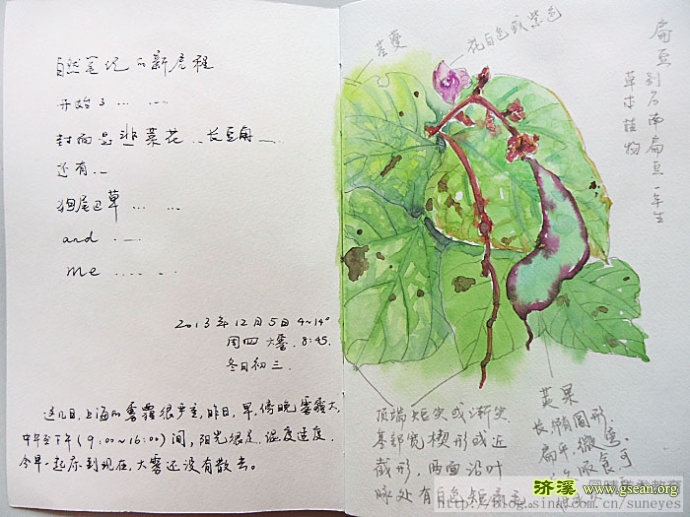 自然笔记的新启程
开始了……
封面是韭菜花…长豆角…
还有…
狗尾巴草……
and …
me ……
2013年12月5日 4~14°
周四 大雾. 8:45.
冬月初三.
这几日,上海的雾霾很严重,昨日,早、傍晚雾霾大,
中午至下午(9:00~16:00)间,阳光很足,温度适度.
今早一起床到现在,大雾还没有散去。
花白色或紫色
扁豆别名南扁豆 一年生
草本植物
顶端短尖或渐尖
基部宽楔形或近
截形,两面沿叶
脉处有白色短柔毛
荚果
长椭圆形,
扁平,微弯.
济溪
www.gsean.org
http://blog.sina.com.cn/suneyes